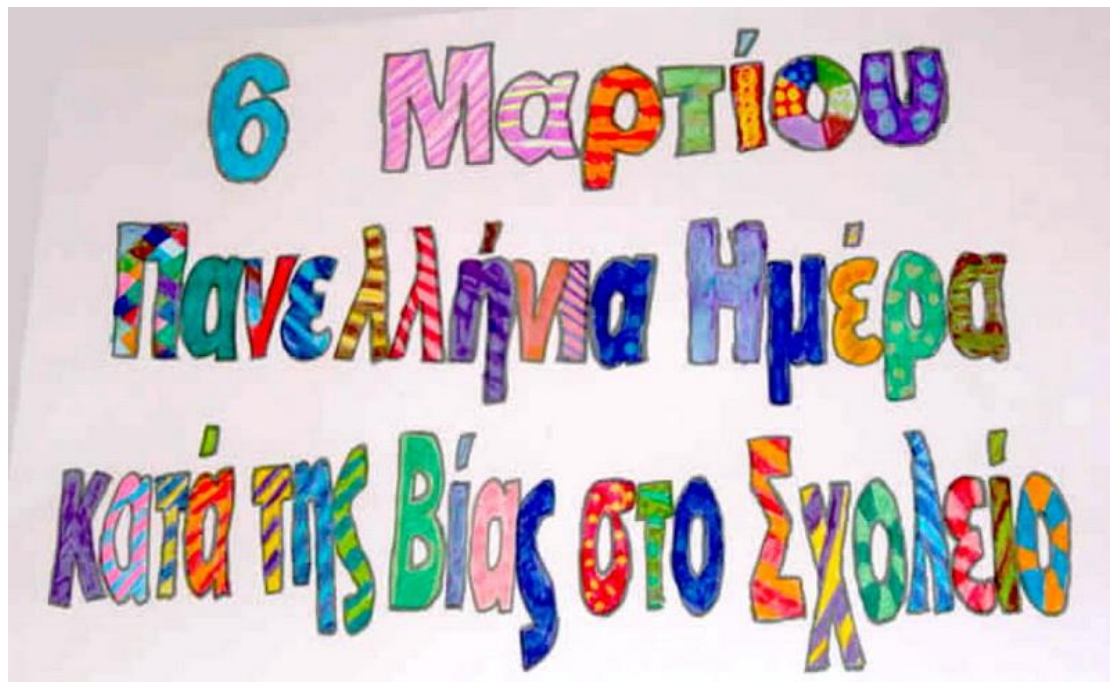 6 Μαρτίου
Πανελλήνια Ημέρα
κατά της Βίας στο Σχολείο